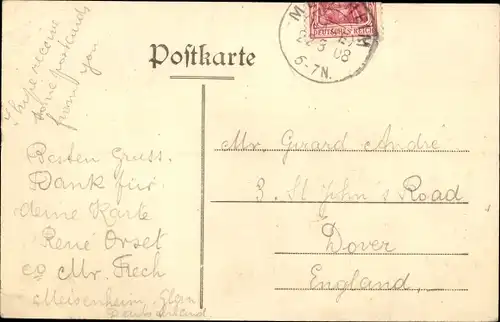 I hope receive
some postcards
from you
Postkarte
DEUTSCHES REICH
3 08
6-7N.
Besten Gruss.
Dank für
deine Karte
René Orset
c/o Mr.
Meisenheim, Glan
Deutschland
Mr. Girard André
3. St John's Road
Dover
England.